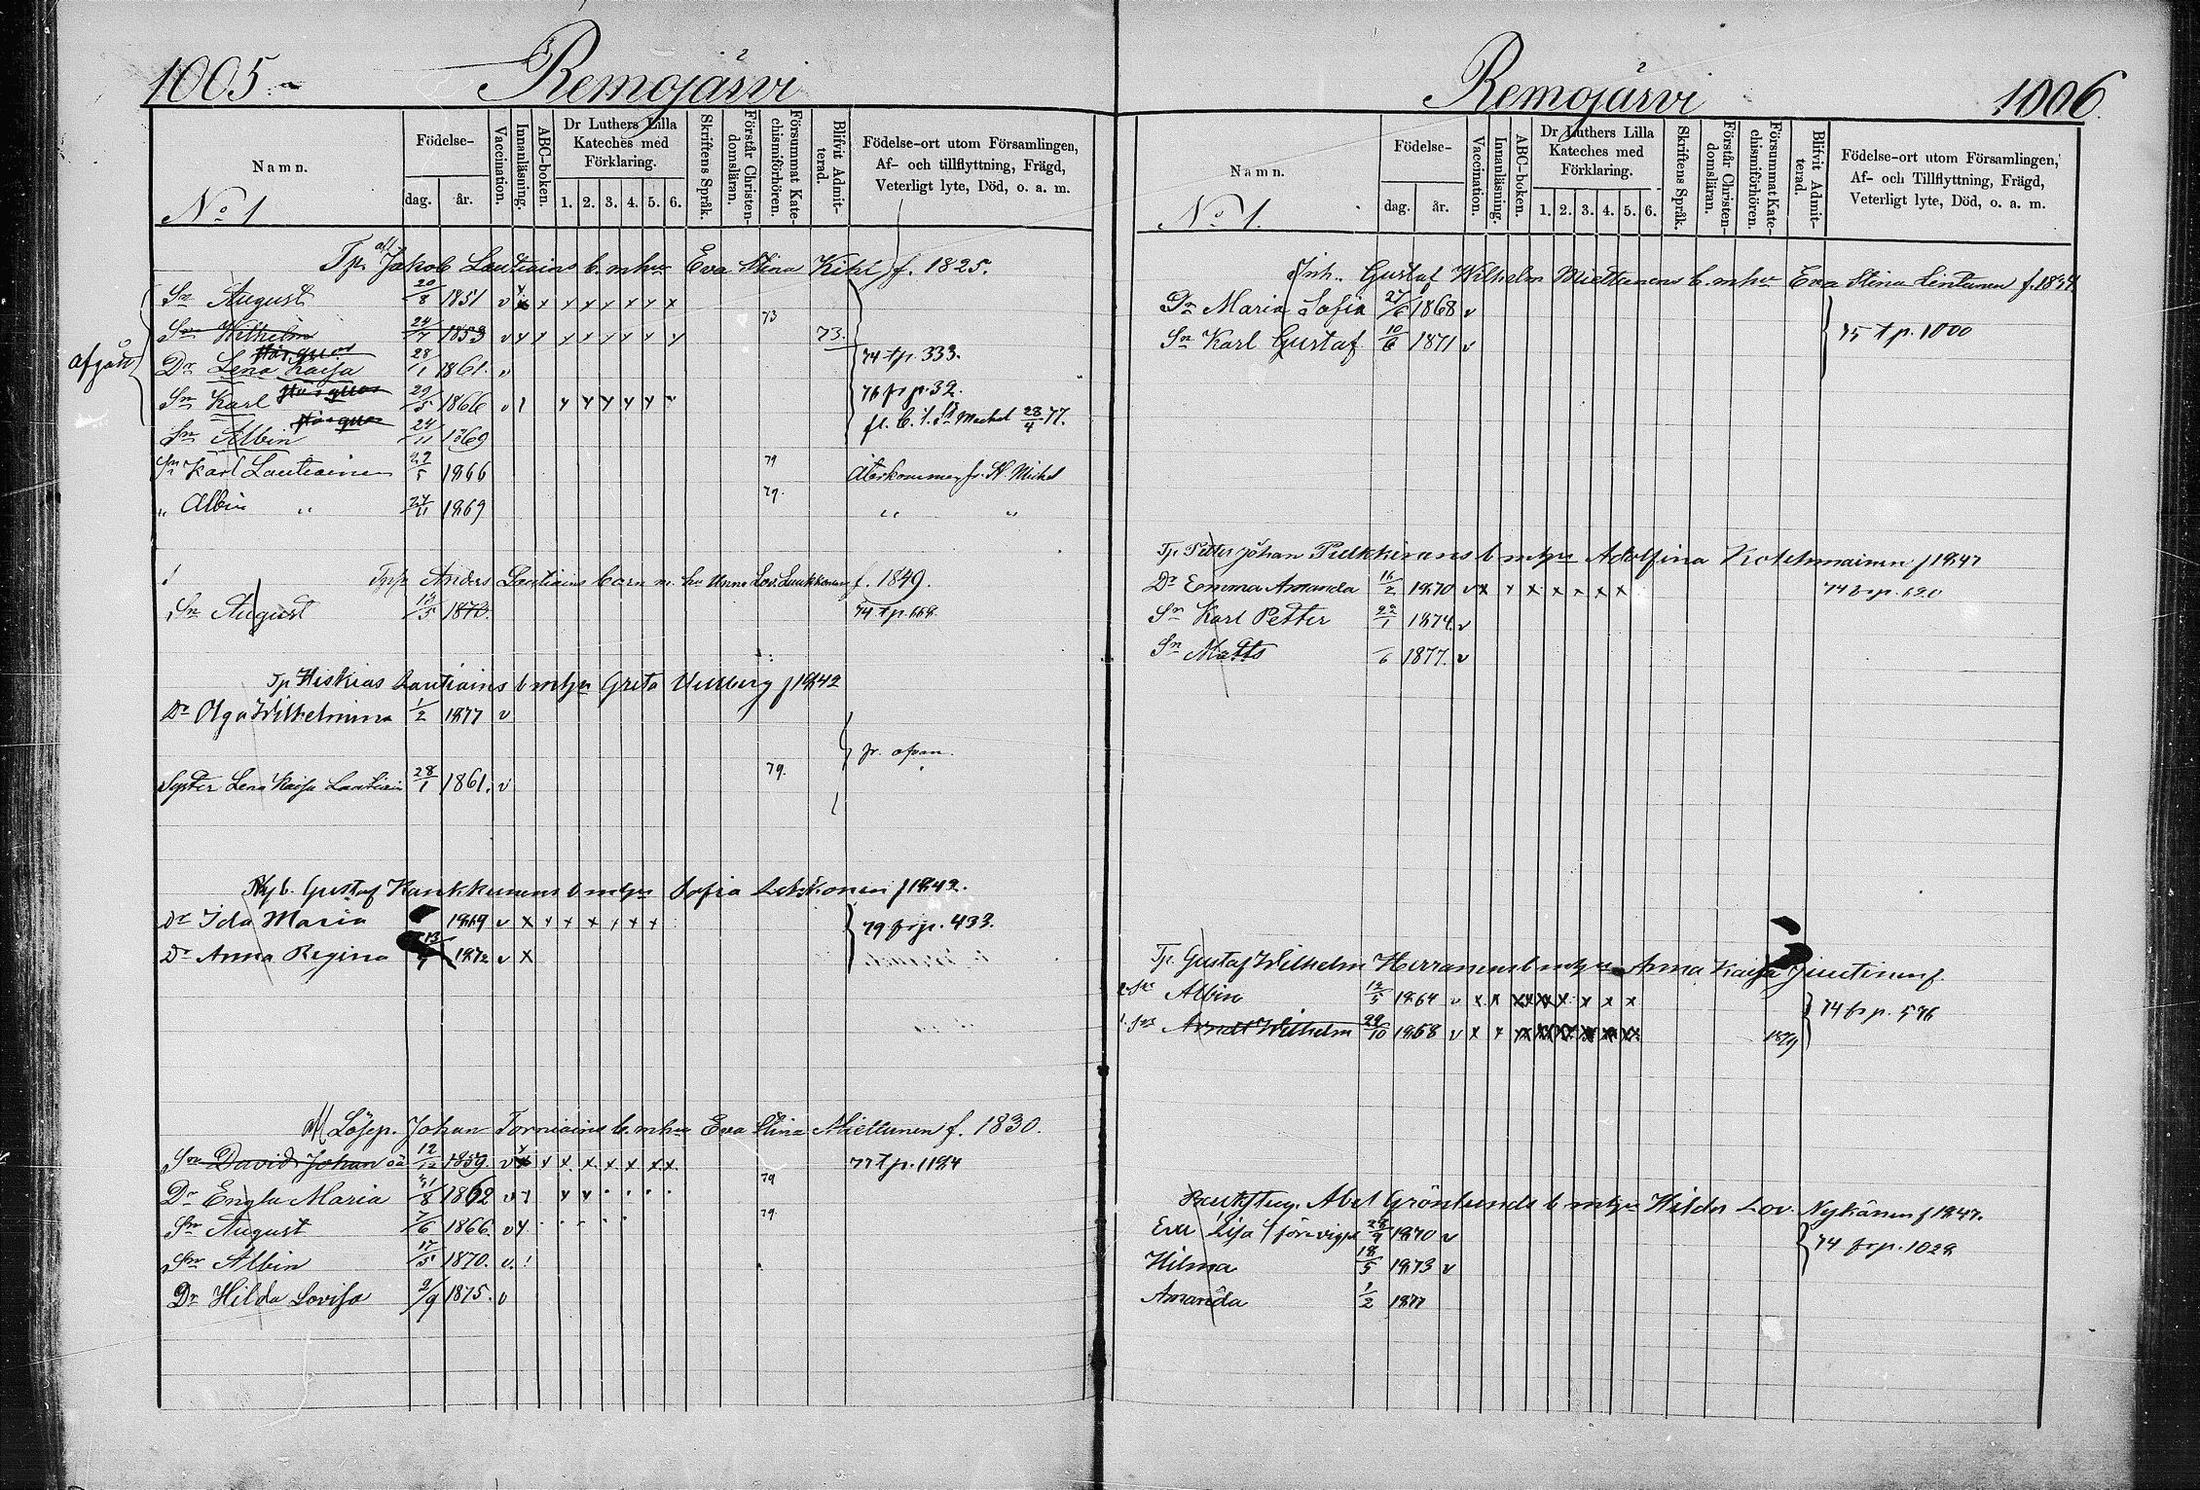 1005.
Remojärvi
Namn.
Födelse-
dag.
år.
Vaccination.
Innanläsning.
ABC-boken.
Dr Luthers Lilla
Kateches med
Förklaring.
1. 2. 3. 4. 5. 6.
Skriftens Språk.
Förstår Christen-
domsläran.
Försummat Kate-
chismiförhören.
Blifvit Admit-
terad.
Födelse-ort utom Församlingen,
Af- och tillflyttning, Frägd,
Veterligt lyte, Död, o. a. m.
No 1
Tp. Jakob Lautiains b. m hu Eva Stina Kihi f. 1825.
Sn August 20/8 1851 v x x x x x x x x
73
Sn Wilhelm 24/7 1853 v x x x x x x x x 73.
afgått
Dr Lena Kaisa 28/1 1861. v 74 tp. 333.
Sn Karl 29/5 1866 v 76 fr p. 32.
fl. b. t. St Michel 23/4 77.
Sn Albin 24/11 1869
Sn Karl Lautiainen 29/5 1866 79 Återkommen fr. St Michel
„ Albin „ 24/11 1869 79. „ „
Anders Lautiains barn m. hu Anna Lov. Luukkonen f. 1849.
Sn August 1870. 74 tp. 668
Tp Hiskias Lautiains b m hu Greta f 1842
Dr Olga Wilhelmina 1/2 1877 v
fr. ofvan.
Syster Lena Kaisa Lautiain 28/1 1861. v 79.
Gustaf Kaukkunens b m hu Sofia f 1842.
Dr Ida Maria 1869 v x x x x x x x
79 fr p. 433.
Dr Anna Regina 1872 v x
Lösep. Johan Torniains b. m hu Eva Stina Miettunen f. 1830.
Sn David Johan 12/12 1859. v x x x x x x x x 77 tp. 1184
Dr Engla Maria 31/8 1862 v 79
Sn August 7/6 1866. v 79.
Sn Albin 17/5 1870. v.
Dr Hilda Lovisa 2/9 1875. v
Remojärvi
1006.
Namn.
Födelse-
dag.
år.
Vaccination.
Innanläsning.
ABC-boken.
Dr Luthers Lilla
Kateches med
Förklaring.
1. 2. 3. 4. 5. 6.
Skriftens Språk.
Förstår Christen-
domsläran.
Försummat Kate-
chismiförhören.
Blifvit Admit-
terad.
Födelse-ort utom Församlingen,
Af- och Tillflyttning, Frägd,
Veterligt lyte, Död, o. a. m.
No 1.
Inh. Gustaf Wilhelm Miettunens b. m hu Eva Stina Lintunen
Dr Maria Sofia 27/6 1868 v
75 tp. 1000
Sn Karl Gustaf 10/6 1871 v
Tp Petter Johan Pulkkinens b m hu Adolfina Kotchmainen f 1847
Dr Emma Amanda 16/2 1870 v x x x x x x x 74 fr p. 620
Sn Karl Petter 22/1 1874. v
Sn Matts /6 1877. v
Tp. Gustaf Wilhelm Herranens b m hu Anna Kaisa
2. Sn Albin 12/5 1864 v x x x x x x x x
74 fr p. 576
1. Sn Arndt Wilhelm 29/10 1858 v x x x x x x x x 1879
Abel Grönlunds b m hu Hilda Lov. Nykänen f 1847.
Eva Lisa 28/9 1870 v
74 fr p. 1028
Hilma 18/5 1873 v
Amanda 1/2 1877